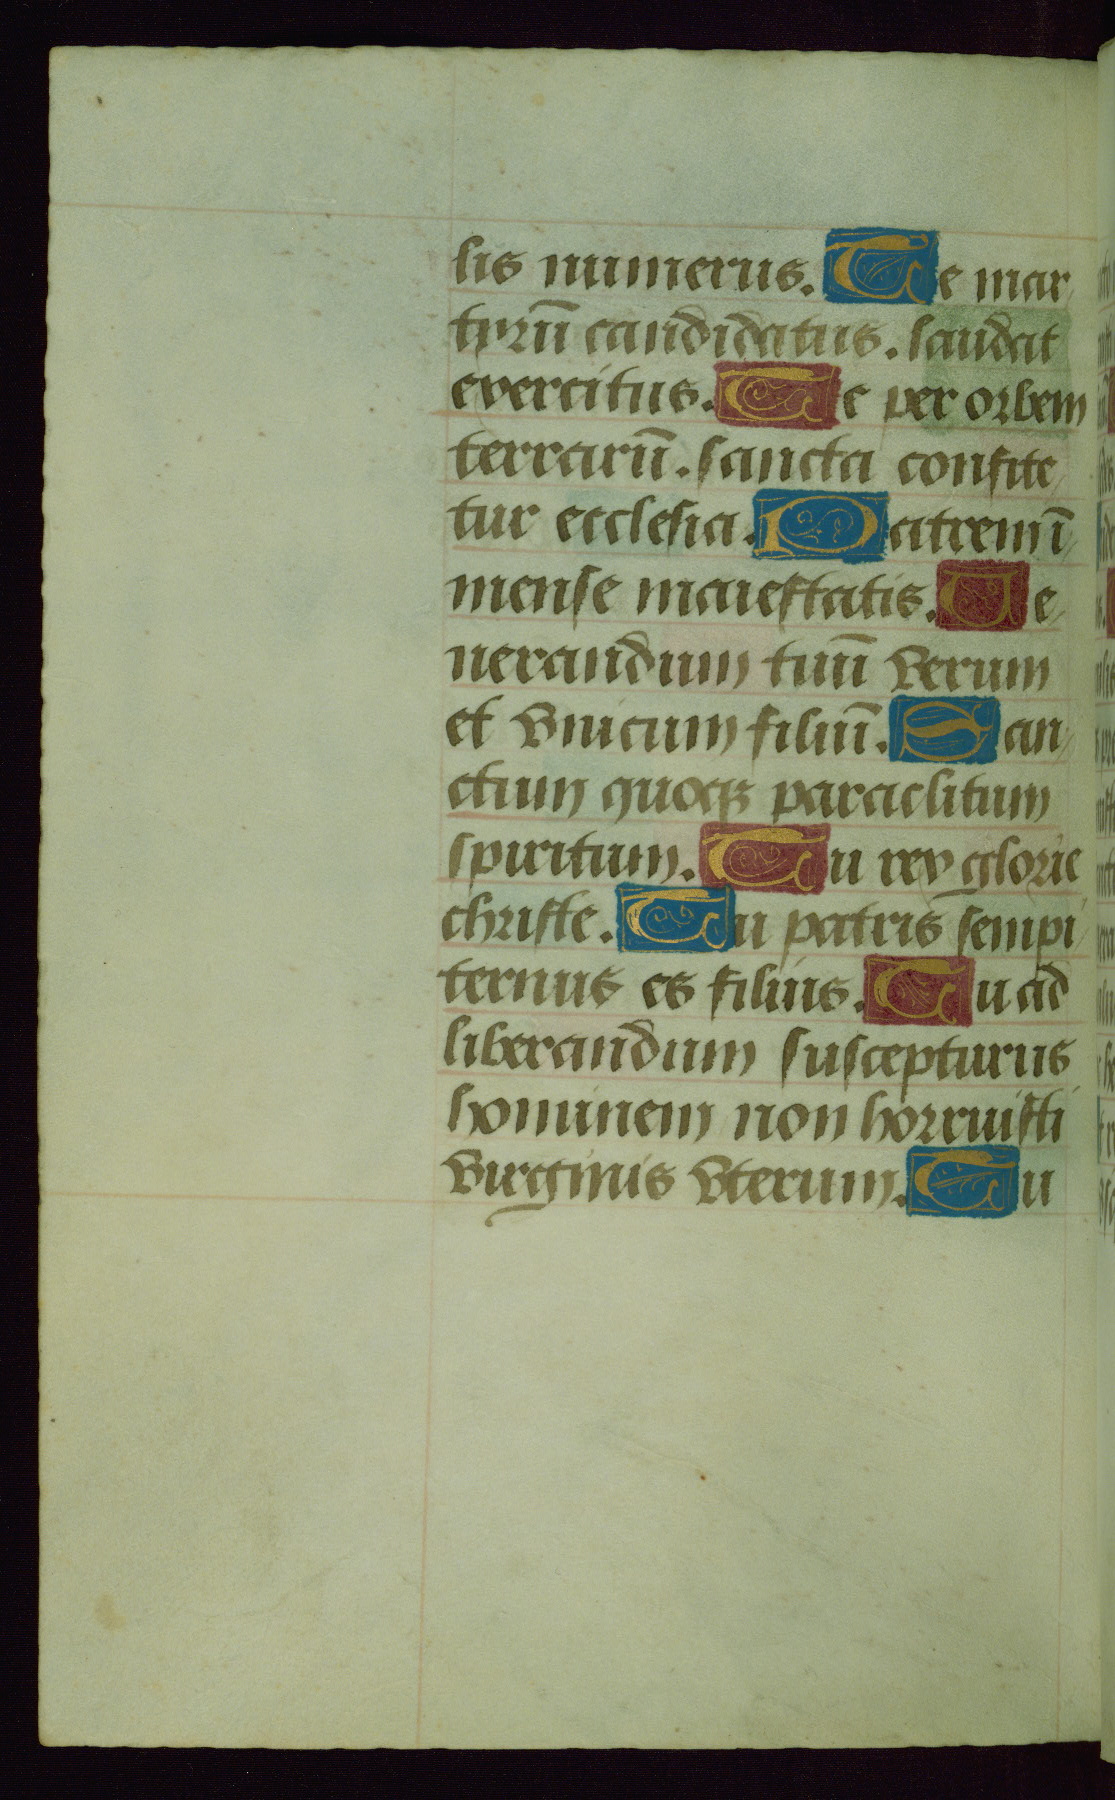 lis numerus. Te mar
tyrū candidatus. laudat
exercitus. Te per orbem
terrarū. sancta confite
tur ecclesia. Patrem ī
mense maiestatis. Ve
nerandum tuū verum
et vnicum filiū. San
ctum quoqꝫ paraclitum
spiritum. Tu rex glorie
christe. Tu patris sempi
ternus es filius. Tu ad
liberandum suscepturus
hominem non horruisti
virginis vterum. Tu